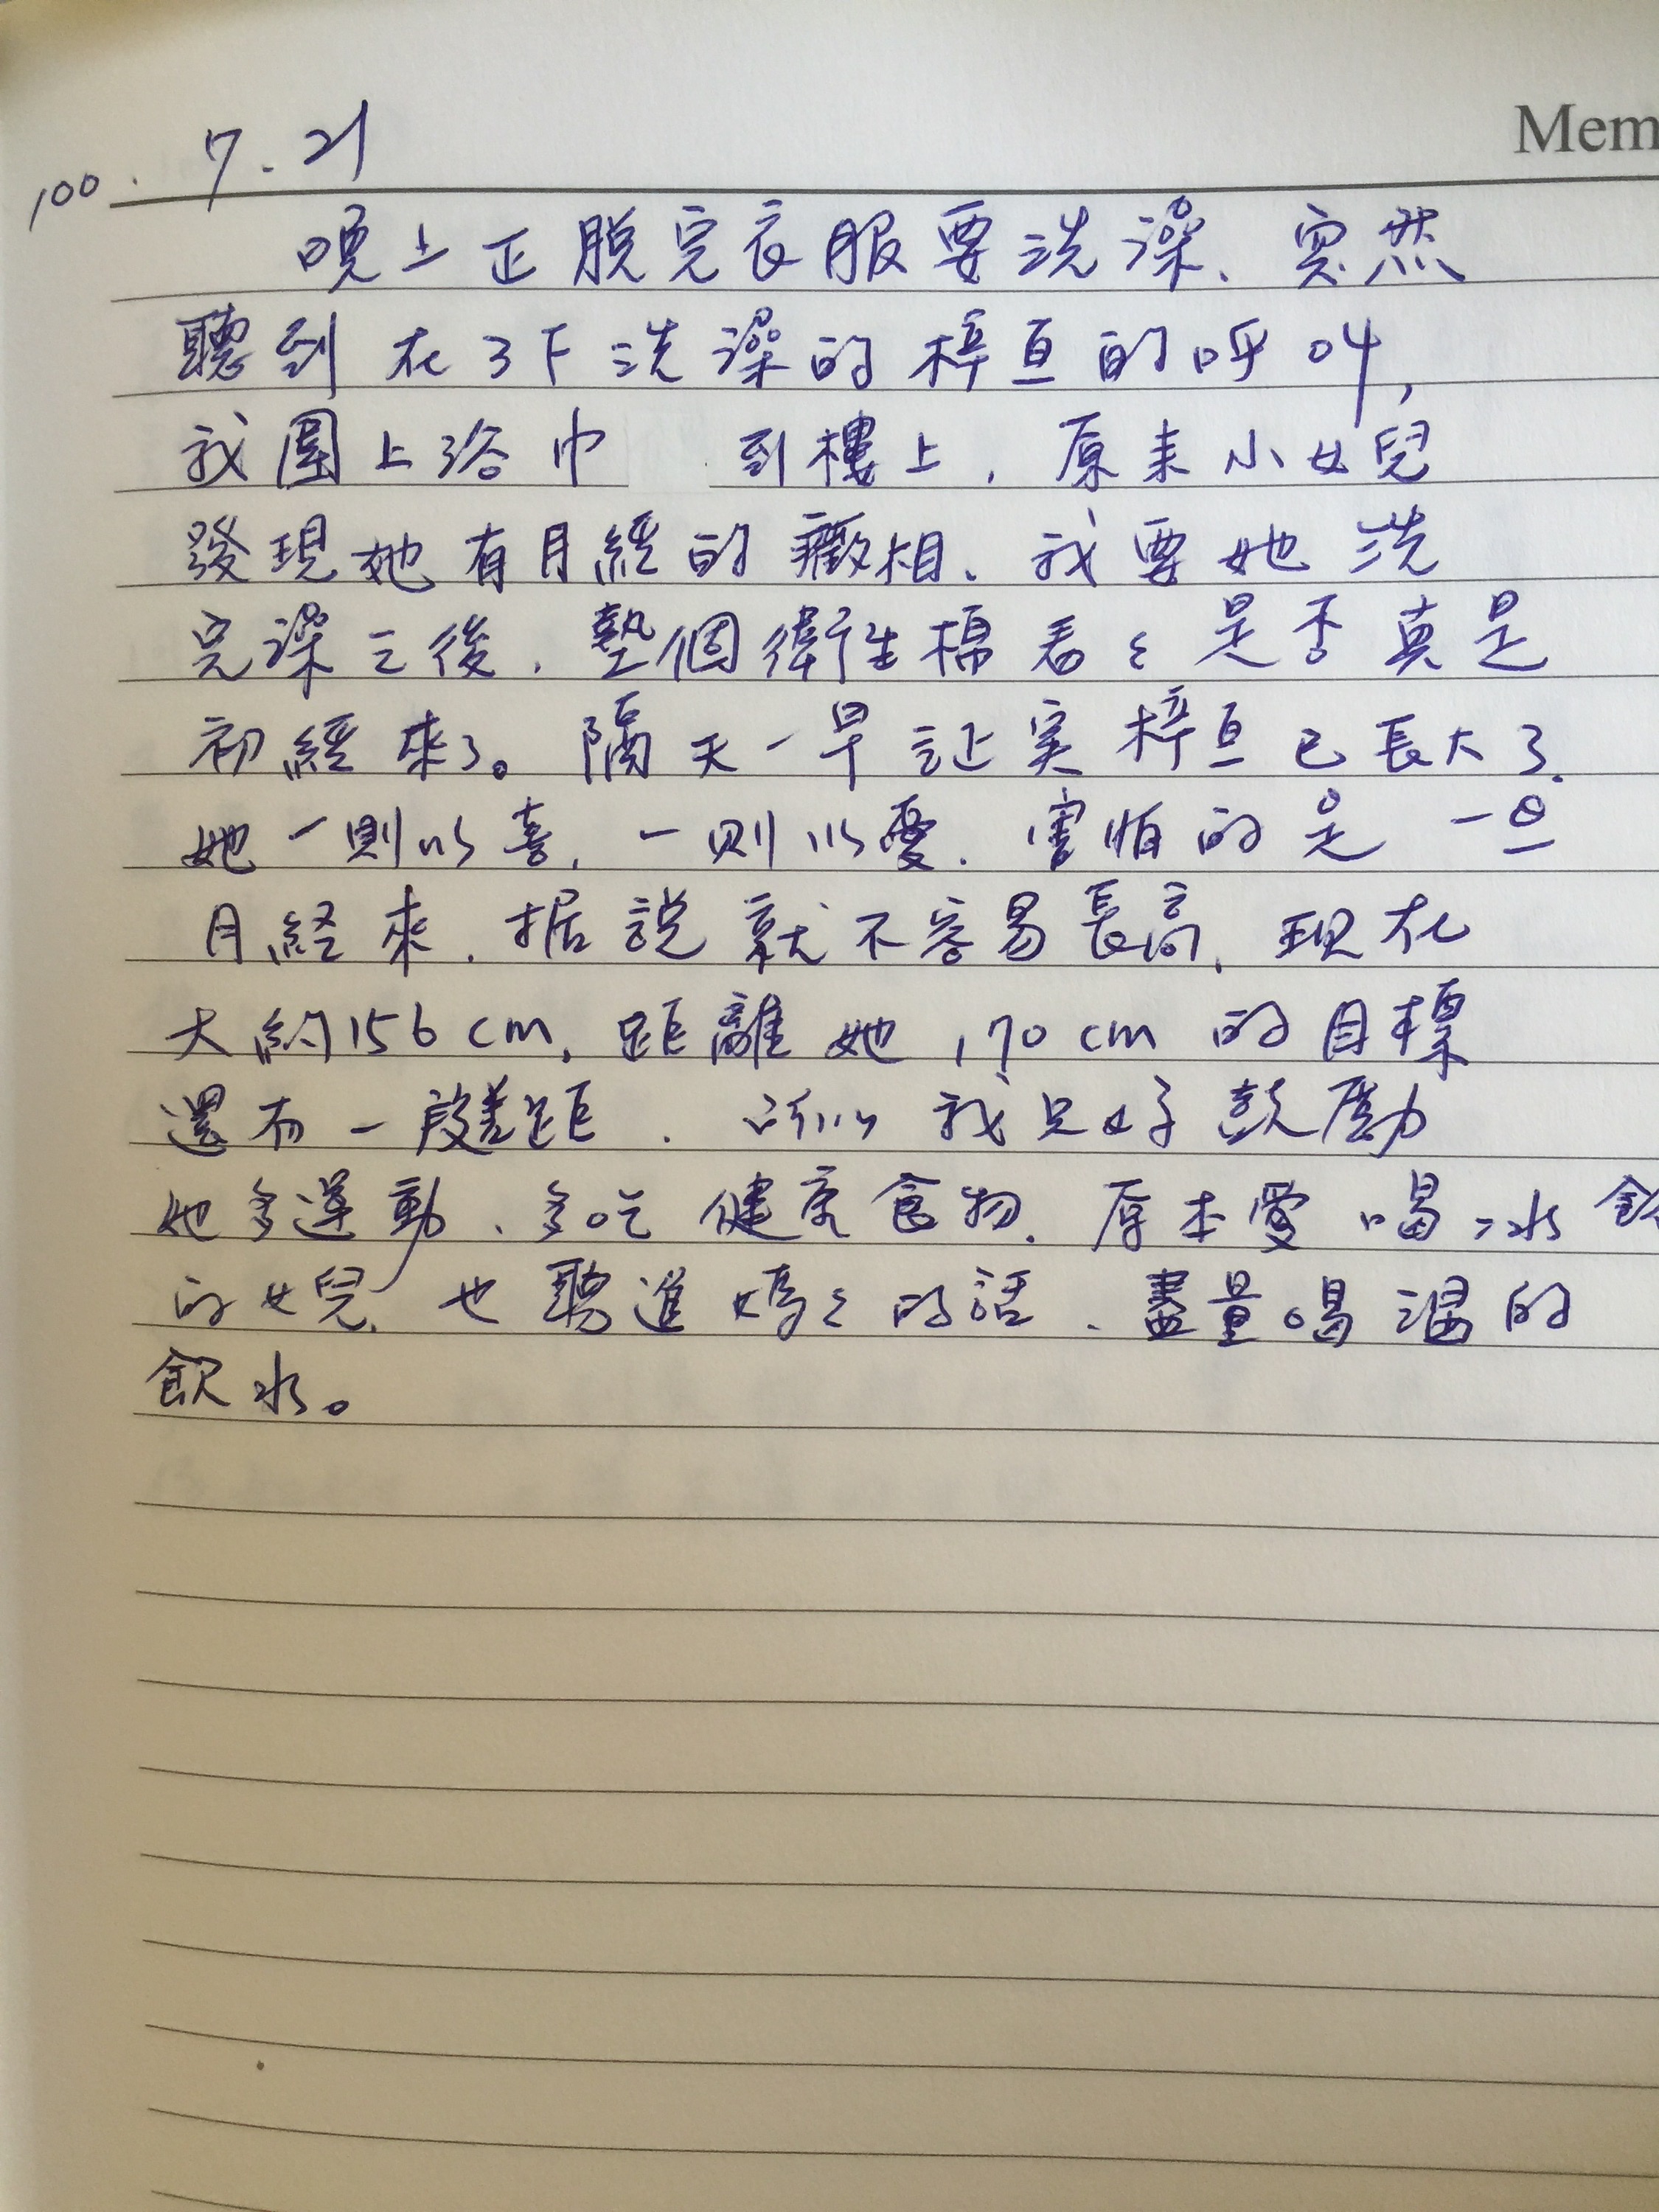 Mem
100. 7. 21
晚上正脫完衣服要洗澡、突然
聽到在3F洗澡的梓亘的呼叫,
我圍上浴巾 到樓上,原来小女兒
發現她有月經的癥相、我要她洗
完澡之後,墊個衛生棉看々是否真是
初經來了。隔天一早証实梓亘已長大了.
她一則以喜,一則以憂.害怕的是一旦
月経來.据說就不容易長高,現在
大約156cm,距離她170cm的目標
還有一段差距.所以我只好鼓勵
她多運動、多吃健康食物.原本愛喝冰
的女兒,也聽進媽々的話、盡量喝溫的
飲水。